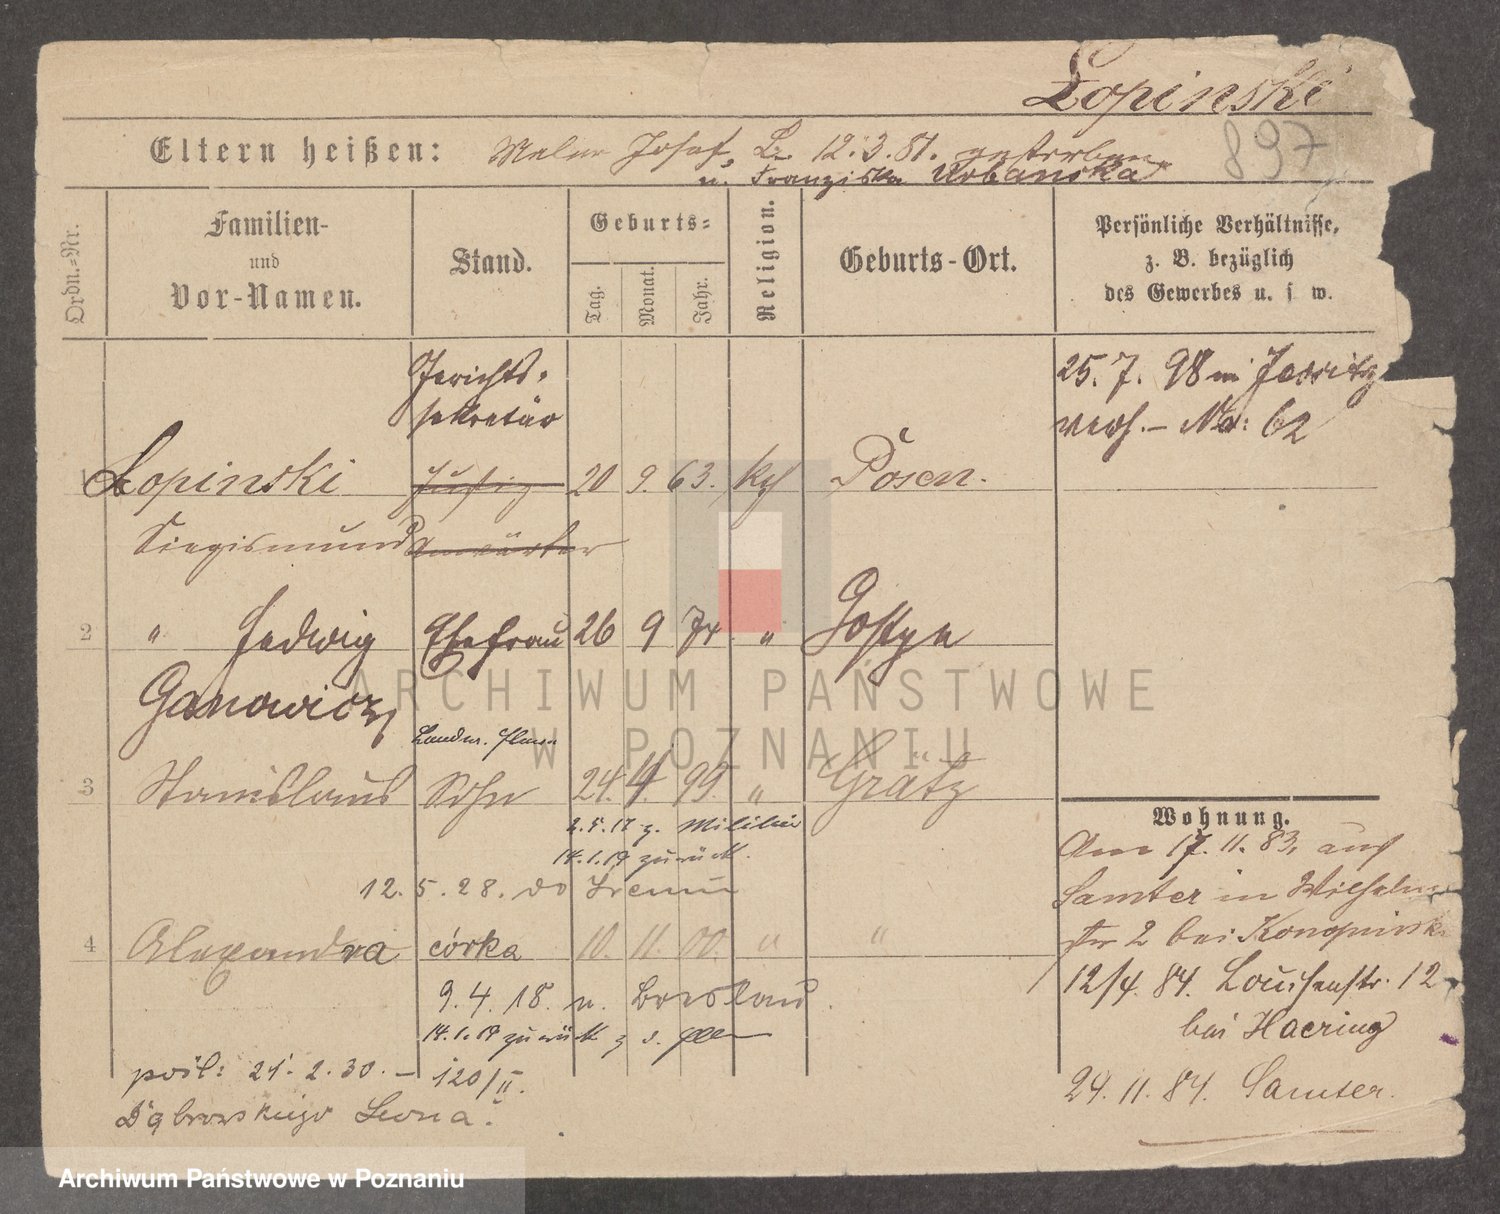 Łopinski
897
Eltern heißen: Maler Josef, L. 12.3.81. gestorben
u. Franziska Urbanska
Ordn.=Nr.
Familien-
und
Vor-Namen.
Stand.
Geburts=
Tag.
Monat.
Jahr.
Religion.
Geburts-Ort.
Persönliche Verhältnisse,
z. B. bezüglich
des Gewerbes u. s w.
Gerichts-
sekretär
25. 7. 98 in Jersitz
verh. - No: 62
1 Łopinski Justiz 20 9. 63. kth Posen.
Siegismund Anwärter
2 " Hedwig Ehefrau 26 9 74 " Gostyn
Ganowicz
Landw. Eleve
3 Stanislaus Sohn 24. 4. 99. " Grätz
2.5.17 z. Militär
14.1.19 zurück.
12. 5. 28. do Śremu
4 Alexandra córka 10. 11. 00. " "
9. 4. 18. n. Breslau
14.1.19 zurück z d. Eltern
pośl: 21. 2. 30. - 120/II.
Dąbrowskiego Leona.
Wohnung.
Am 17. 11. 83, aus
Samter in Wilhelm
str 2 bei Konopinski
12/4. 84. Louisenstr. 12
bei Haering
24. 11. 84. Samter.
ARCHIWUM PAŃSTWOWE
W POZNANIU
Archiwum Państwowe w Poznaniu